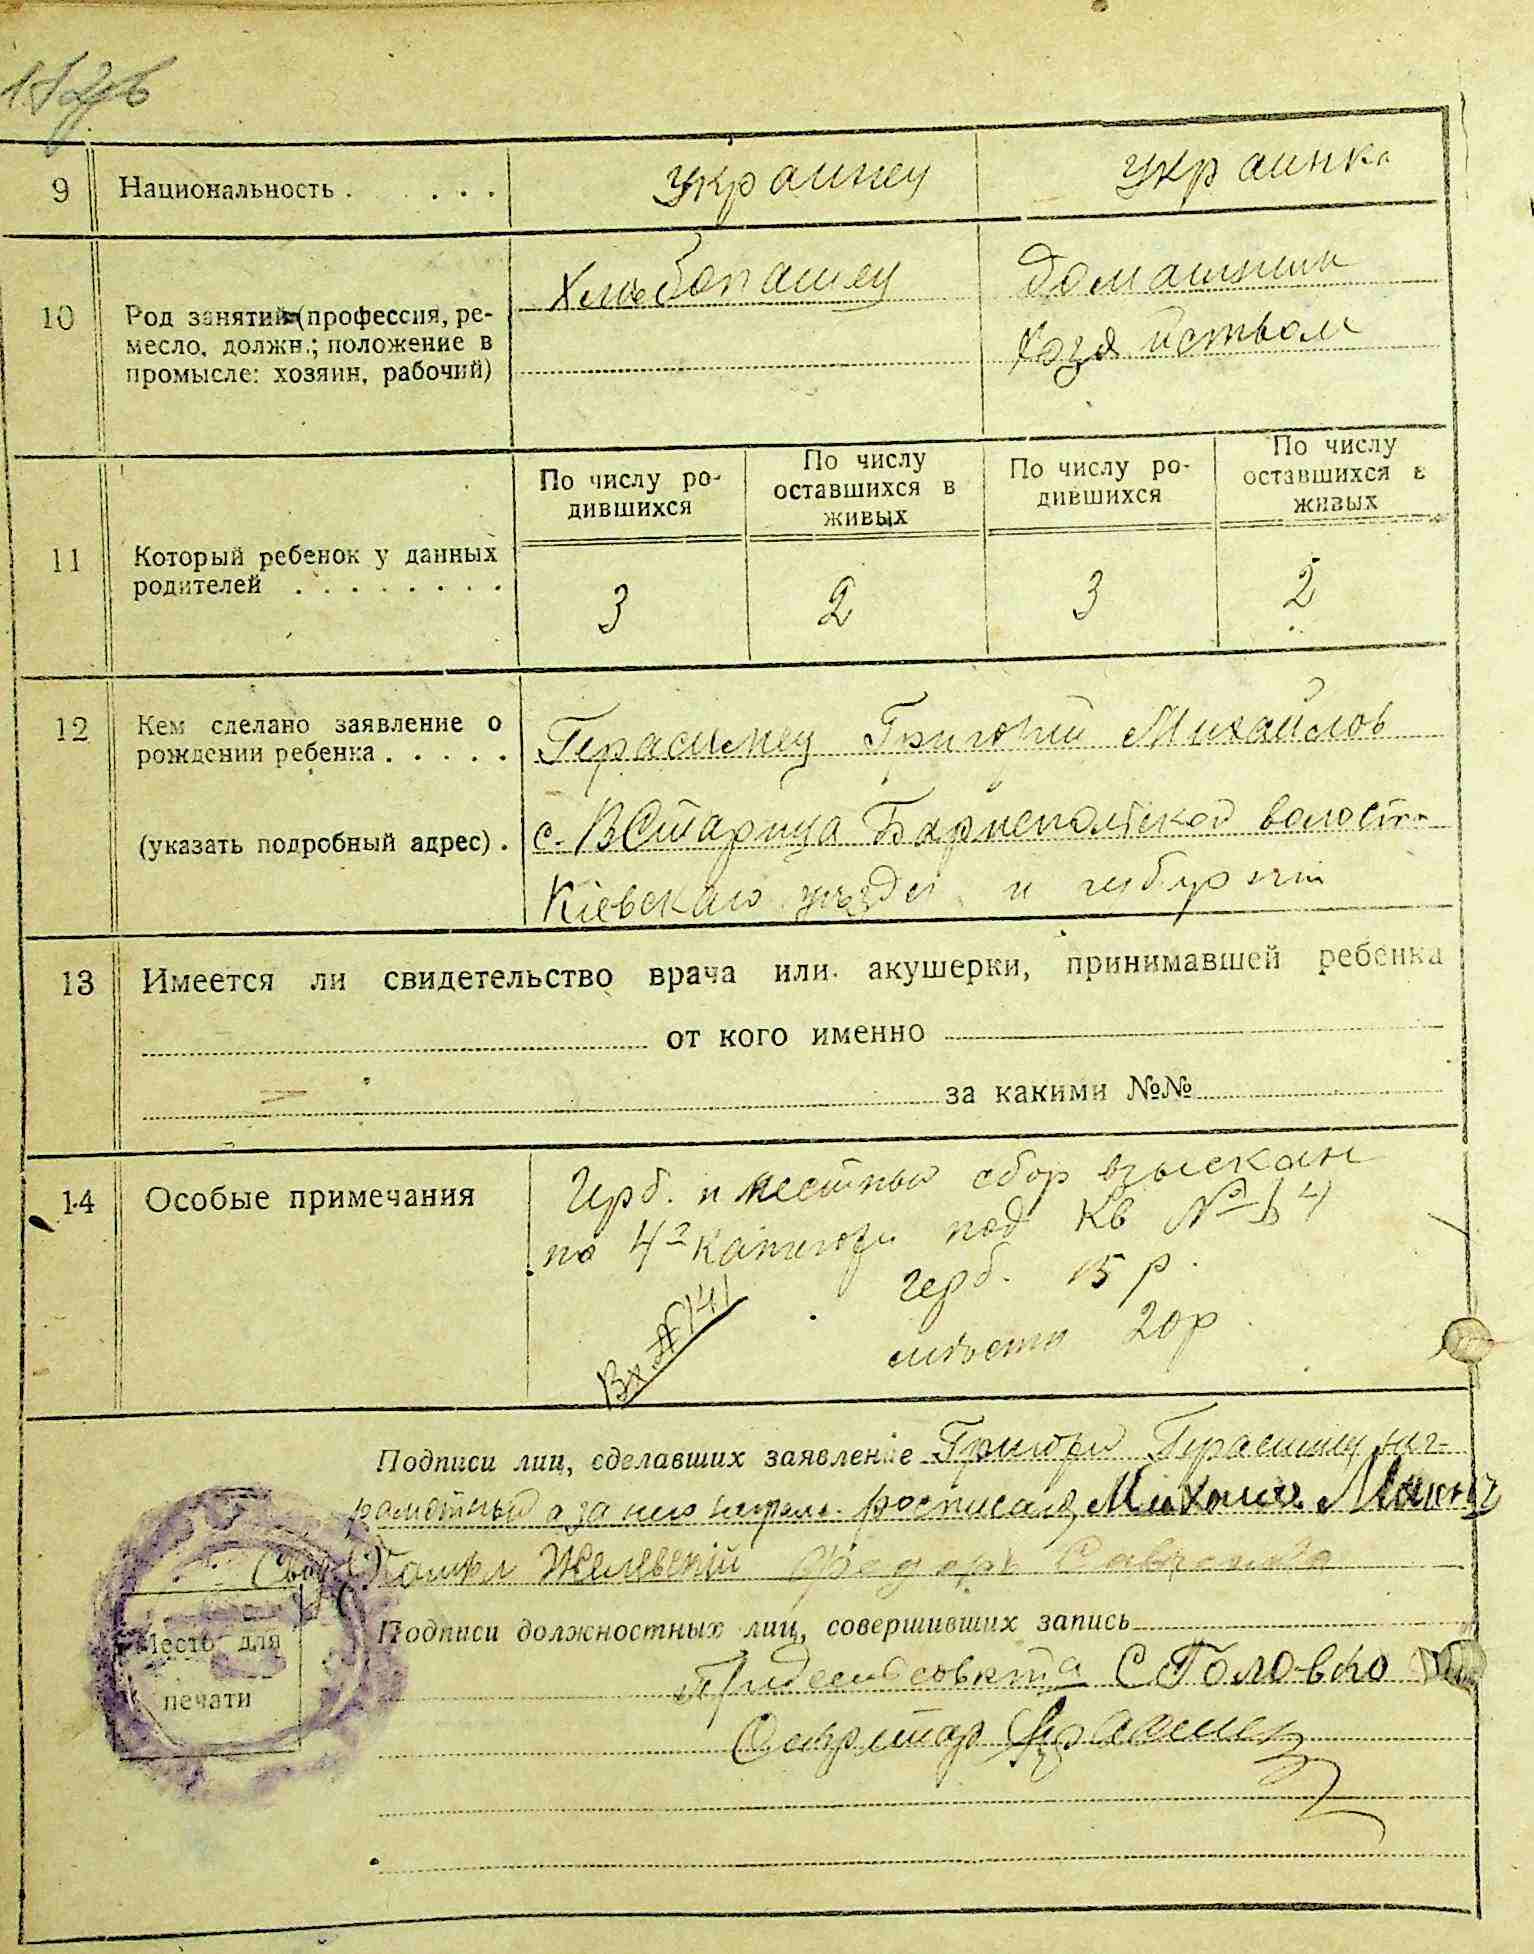 9 Национальность . . . . украинец украинка
10 Род занятий (профессия, ре-
месло, должн.; положение в
промысле: хозяин, рабочий)
Хлебопашец
домашним
хозяйством
11 Который ребенок у данных
родителей . . . . . . . .
По числу ро-
дившихся
По числу
оставшихся в
живых
По числу ро-
дившихся
По числу
оставшихся в
живых
3 2 3 2
12 Кем сделано заявление о
рождении ребенка . . . . .
(указать подробный адрес) .
Герасимец Григорий Михайлов
с. ВСтарица Барыспольской волости
Кіевскаго уъзда и губерніи
13 Имеется ли свидетельство врача или акушерки, принимавшей ребенка
от кого именно
за какими №№
14 Особые примечания
Герб. и местный сбор взыскан
по 4й категори под Кв №14
герб. 15 р.
мъстн 20р
Вх №141
Подписи лиц, сделавших заявление Григори Герасимец негра-
мотный а за него неграм. росписался Михаил
Федоръ Савченко
Место для
печати
Подписи должностных лиц, совершивших запись
СГоловко
Секретар